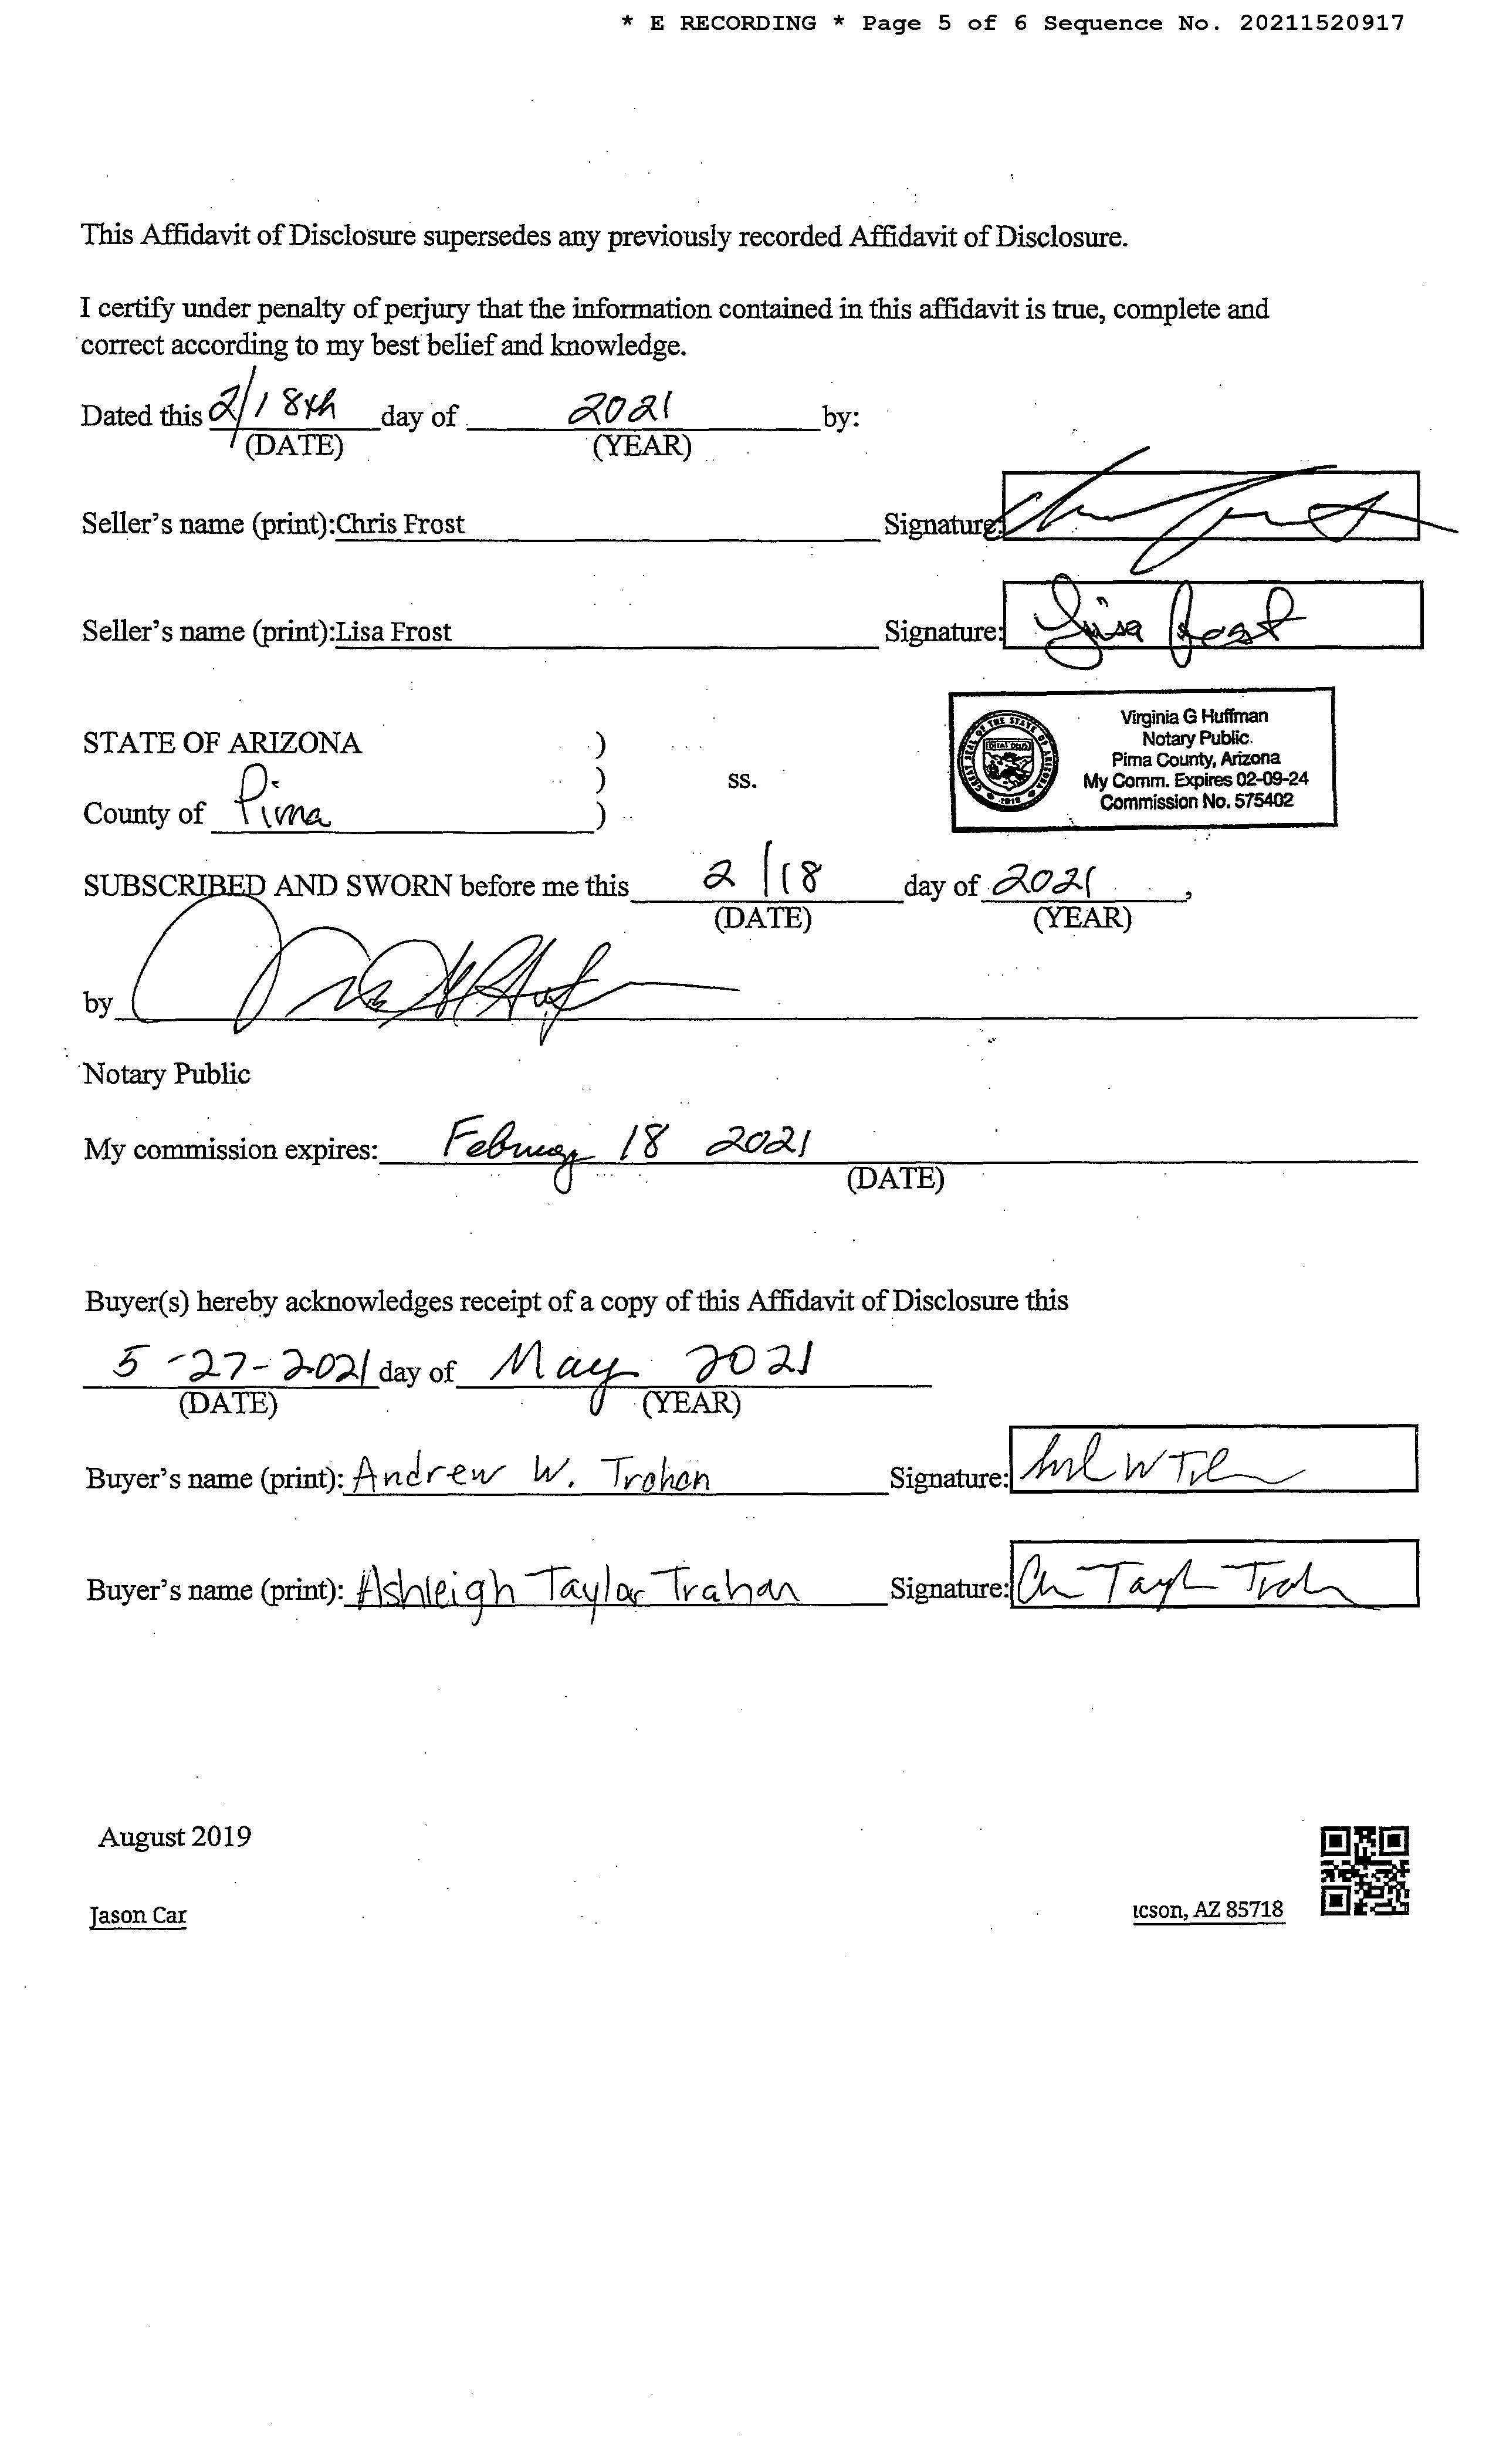 * E RECORDING * Page 5 of 6 Sequence No. 20211520917
This Affidavit of Disclosure supersedes any previously recorded Affidavit of Disclosure.
I certify under penalty of perjury that the information contained in this affidavit is true, complete and
correct according to my best belief and knowledge.
Dated this 2/18th day of 2021 by:
(DATE) (YEAR)
Seller's name (print):Chris Frost Signature:
Seller's name (print):Lisa Frost Signature: Lisa Frost
STATE OF ARIZONA )
) ss.
County of Pima )
GREAT SEAL OF THE STATE OF ARIZONA
DITAT DEUS
1912
Virginia G Huffman
Notary Public
Pima County, Arizona
My Comm. Expires 02-09-24
Commission No. 575402
SUBSCRIBED AND SWORN before me this 2/18 day of 2021,
(DATE) (YEAR)
by
Notary Public
My commission expires: February 18 2021
(DATE)
Buyer(s) hereby acknowledges receipt of a copy of this Affidavit of Disclosure this
5-27-2021 day of May 2021
(DATE) (YEAR)
Buyer's name (print): Andrew W. Trahan Signature:
Buyer's name (print): Ashleigh Taylor Trahan Signature:
August 2019
Jason Car
ucson, AZ 85718